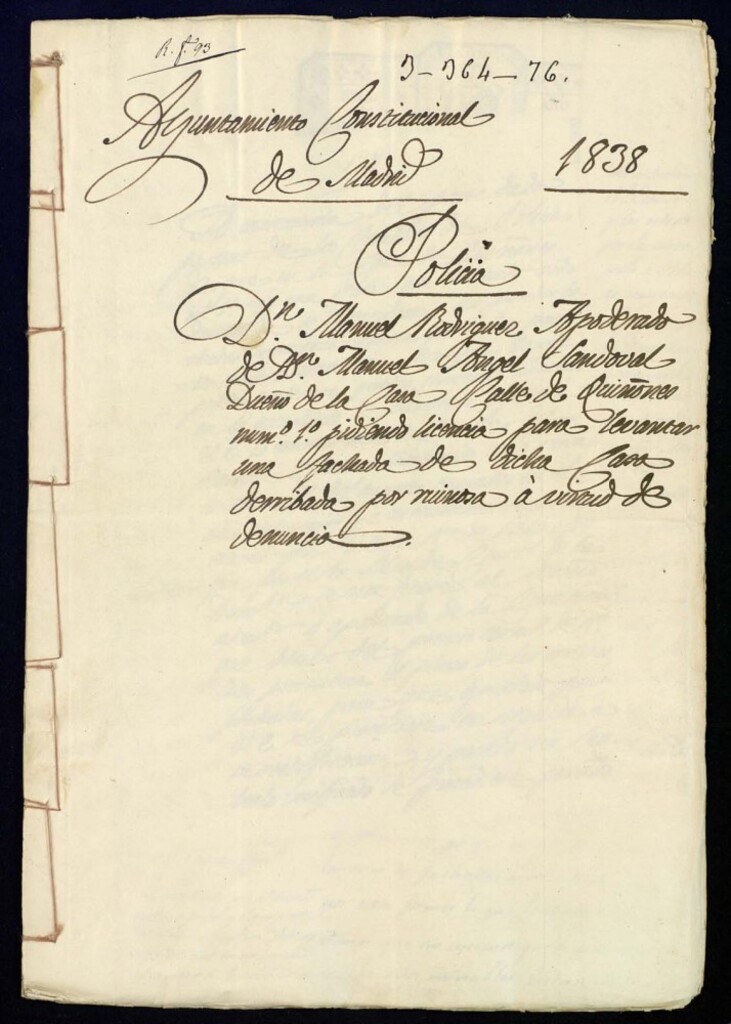 R. f.º 93
3-364-76.
Ayuntamiento Constitucional
de Madrid
1838
Policia
D.n Manuel Rodriguez Apoderado
de D.n Manuel Angel Sandoval
Dueño de la Casa Calle de Quiñones
num.º 1.º pidiendo licencia para levantar
una fachada de dicha Casa
derribada por ruinosa à virtud de
denuncia.